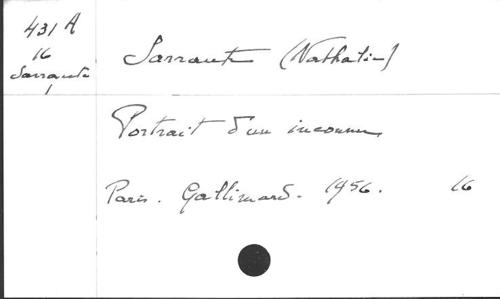 431 A
16
Sarraute
1
Sarraute (Nathalie)
Portrait d'un inconnu
Paris. Gallimard. 1956. 16